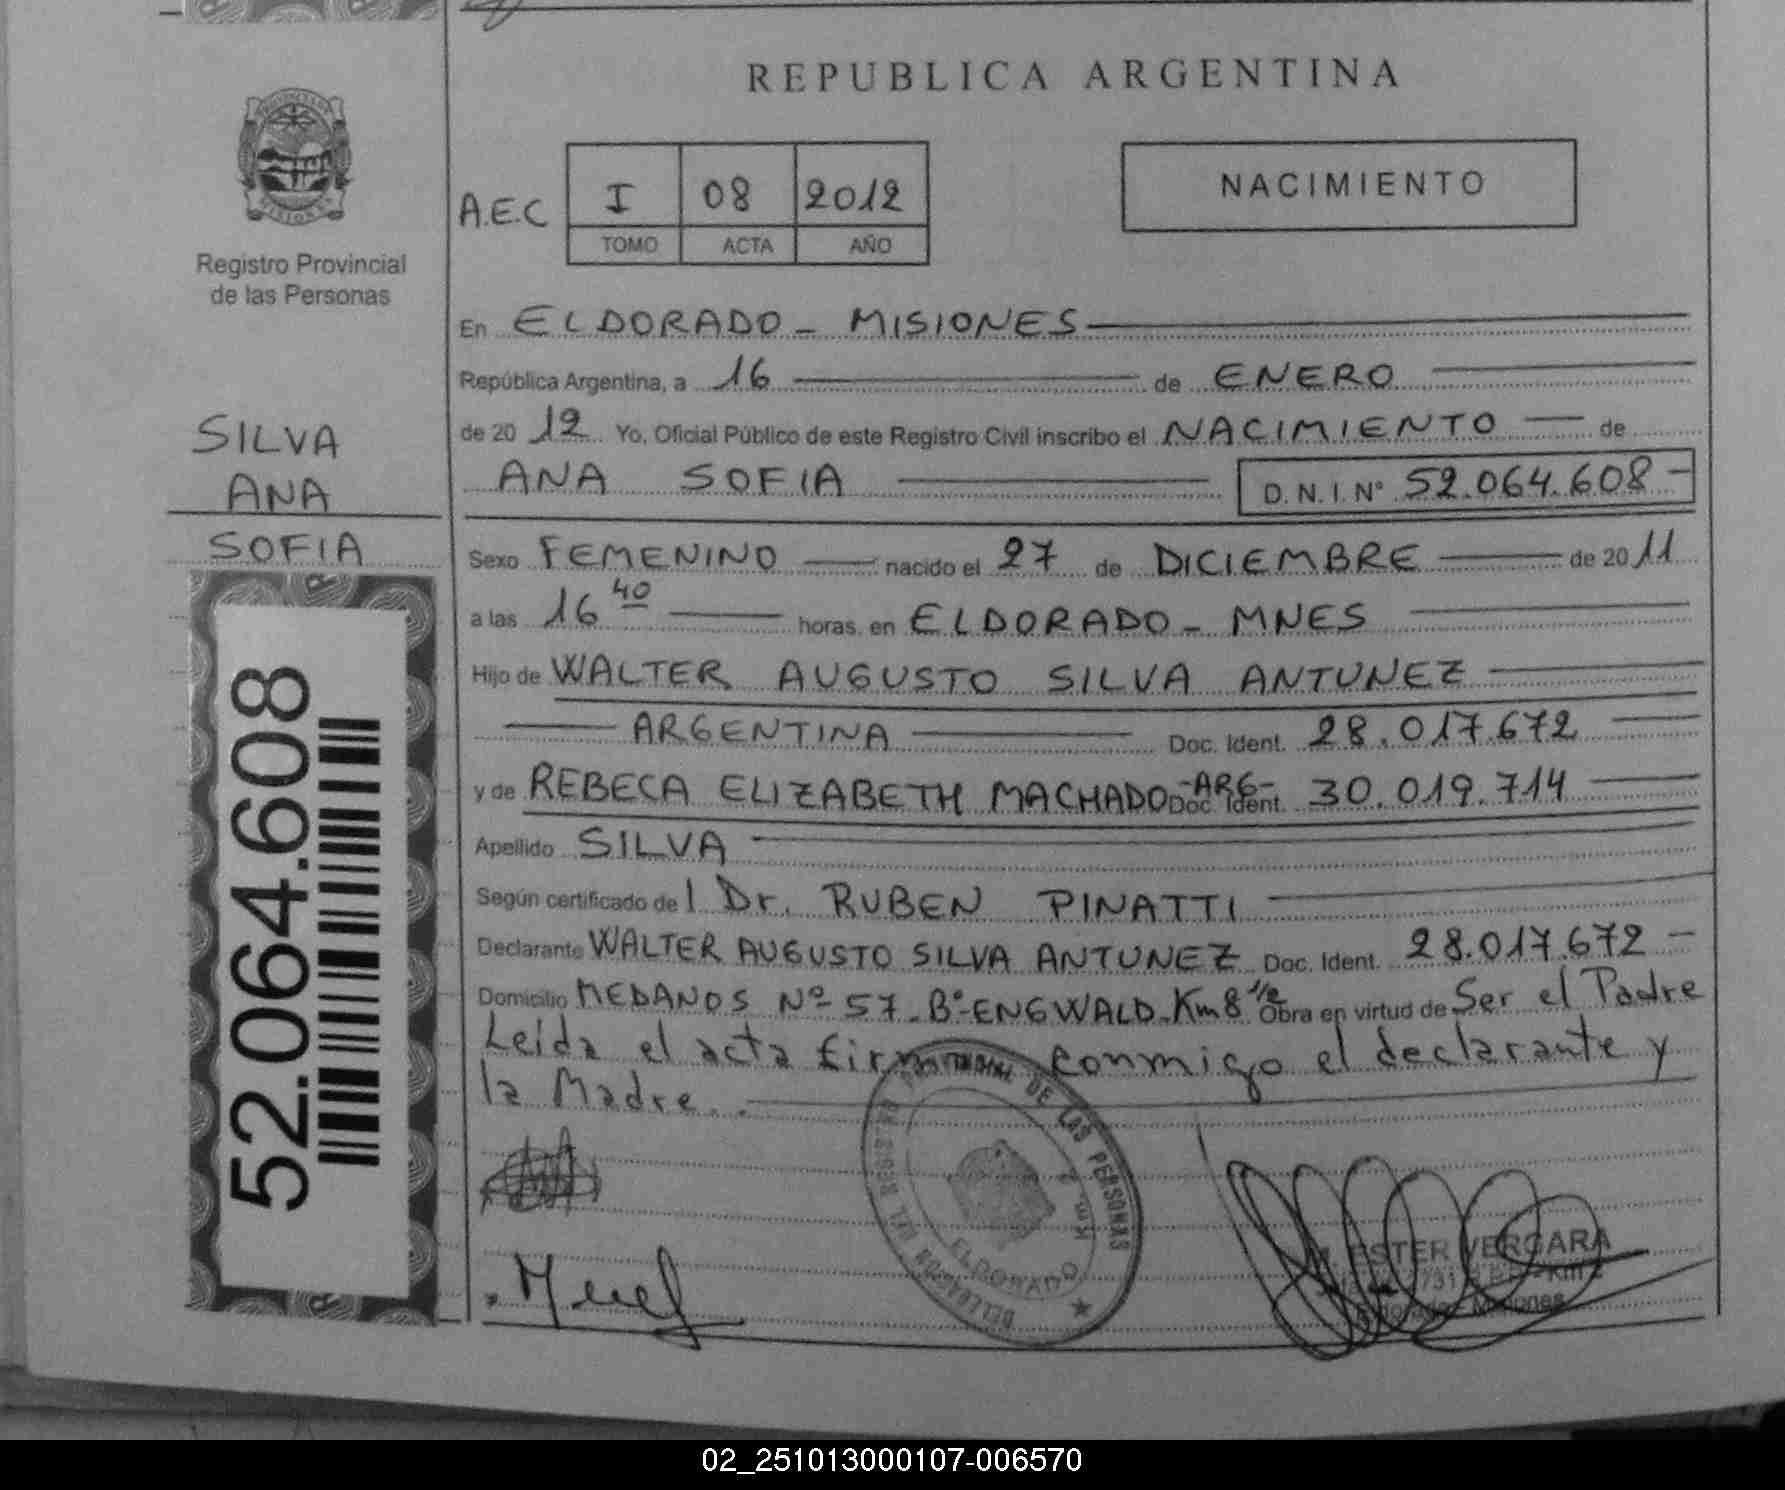 REPUBLICA ARGENTINA
NACIMIENTO
A.E.C I 08 2012
TOMO ACTA AÑO
Registro Provincial
de las Personas
SILVA
ANA
SOFIA
52.064.608
En ELDORADO - MISIONES
República Argentina, a 16 de ENERO
de 2012 Yo, Oficial Público de este Registro Civil inscribo el NACIMIENTO de
ANA SOFIA D.N.I. Nº 52.064.608
Sexo FEMENINO nacido el 27 de DICIEMBRE de 2011
a las 16 40 horas, en ELDORADO - MNES
Hijo de WALTER AUGUSTO SILVA ANTUNEZ
ARGENTINA Doc. Ident. 28.017.672
y de REBECA ELIZABETH MACHADO -ARG- Doc. Ident. 30.019.714
Apellido SILVA
Según certificado del Dr. RUBEN PINATTI
Declarante WALTER AUGUSTO SILVA ANTUNEZ Doc. Ident. 28.017.672
Domicilio MEDANOS Nº 57 - Bº ENGWALD - Km 8 1/2 Obra en virtud de Ser el Padre
Leida el acta conmigo el declarante y
la Madre.
DE LAS PERSONAS
ELDORADO
ESTER VERGARA
02_251013000107-006570